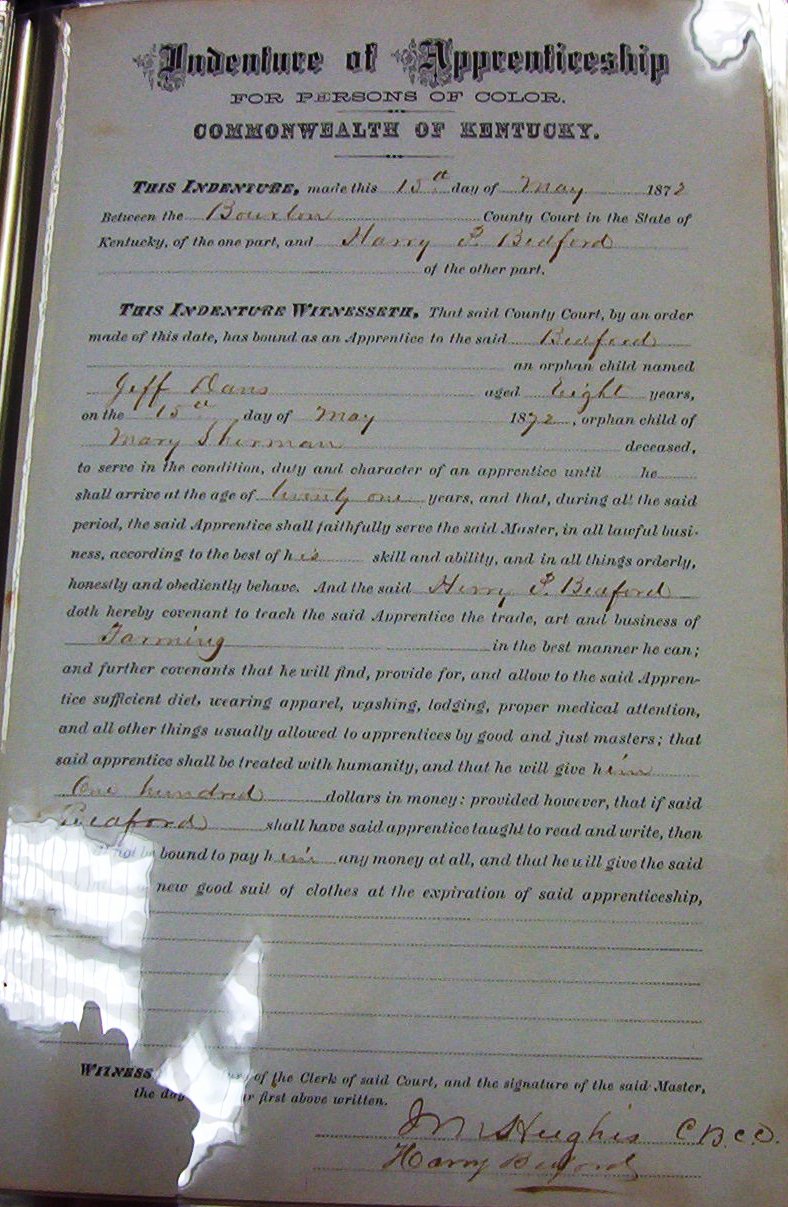 Indenture of Apprenticeship
FOR PERSONS OF COLOR.
COMMONWEALTH OF KENTUCKY.
THIS INDENTURE, made this 15th day of May 1872
Between the Bourbon County Court in the State of
Kentucky, of the one part, and Harry P. Bedford
of the other part.
THIS INDENTURE WITNESSETH, That said County Court, by an order
made of this date, has bound as an Apprentice to the said Bedford
an orphan child named
Jeff Davis aged Eight years,
on the 15th day of May 1872, orphan child of
Mary Sherman deceased,
to serve in the condition, duty and character of an apprentice until he
shall arrive at the age of twenty one years, and that, during all the said
period, the said Apprentice shall faithfully serve the said Master, in all lawful busi-
ness, according to the best of his skill and ability, and in all things orderly,
honestly and obediently behave. And the said Harry P. Bedford
doth hereby covenant to teach the said Apprentice the trade, art and business of
Farming in the best manner he can;
and further covenants that he will find, provide for, and allow to the said Appren-
tice sufficient diet, wearing apparel, washing, lodging, proper medical attention,
and all other things usually allowed to apprentices by good and just masters; that
said apprentice shall be treated with humanity, and that he will give him
One hundred dollars in money: provided however, that if said
Bedford shall have said apprentice taught to read and write, then
not be bound to pay him any money at all, and that he will give the said
new good suit of clothes at the expiration of said apprenticeship,
WITNESS of the Clerk of said Court, and the signature of the said Master,
the day first above written.
J M Hughes C.B.C.C.
Harry Bedford